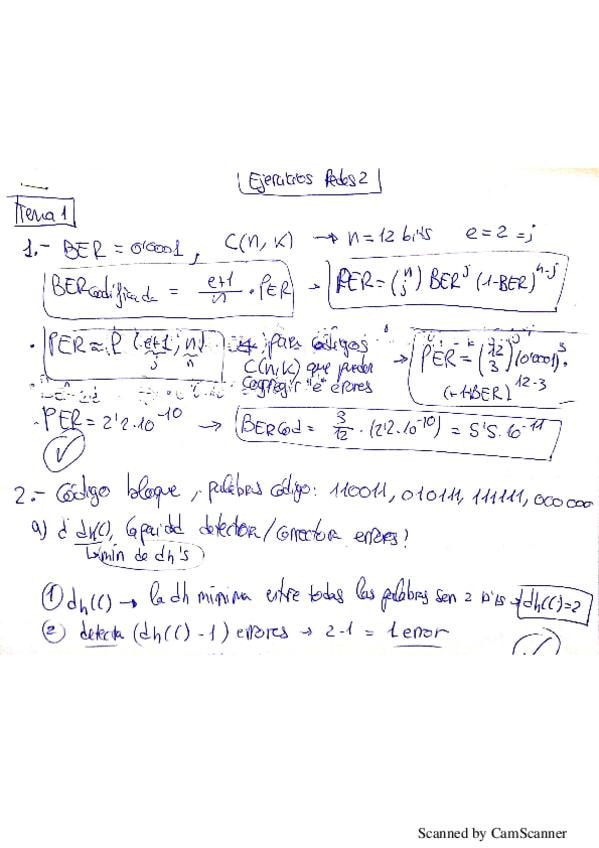 Ejercicios Redes 2
Tema 1
1.- BER = 0'0001, C(n, k) → n = 12 bits e = 2 = j
BERcodificada = e+1/n · PER → PER = (n j) BER^j (1-BER)^n-j
· PER ≈ P (e+1, n) para códigos C(n, k) que pueden corregir "e" errores → PER = (12 3) (0'0001)^3 ·
j n (1-BER)^12-3
· PER = 2'2·10^-10 → BERcod = 3/12 · (2'2·10^-10) = 5'5·10^-11
2.- Código bloque, palabras código: 110011, 010111, 111111, 000000
a) ¿dh(C), Capacidad detector/corrector errores?
↳ min de dh's
① dh(C) → la dh mínima entre todas las palabras son 2 bits → dh(C) = 2
② detecta (dh(C) - 1) errores → 2-1 = 1 error
Scanned by CamScanner